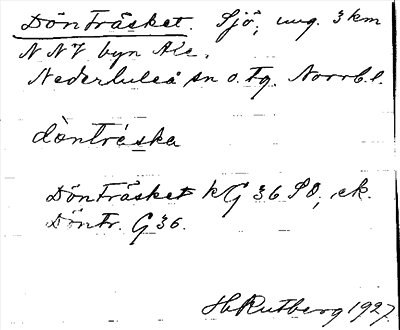 Dönträsket. Sjö, ung. 3 km
NNV byn Ale.
Nederluleå sn o. tg. Norrb. l.
dònträ́ska
Dönträsket kG 36 SO, ek.
Döntr. G 36.
H Rutberg 1927.